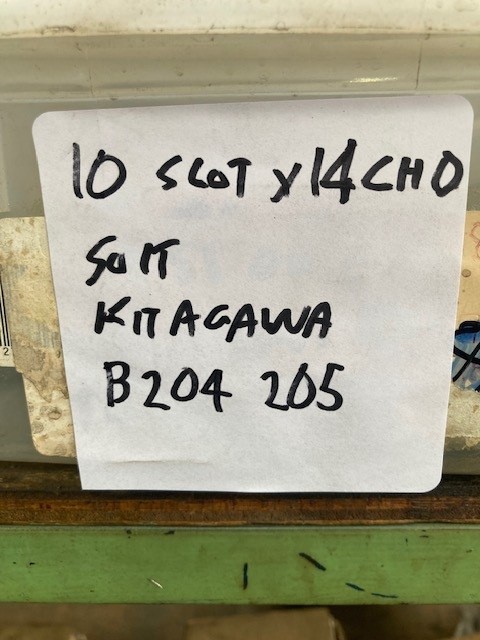 10 SLOT X 14 CHO
SUIT
KITAGAWA
B204 205
2